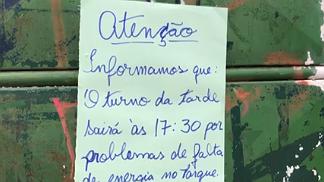 Atenção
Informamos que:
O turno da tarde
sairá às 17:30 por
problemas de falta
de energia no tarque.